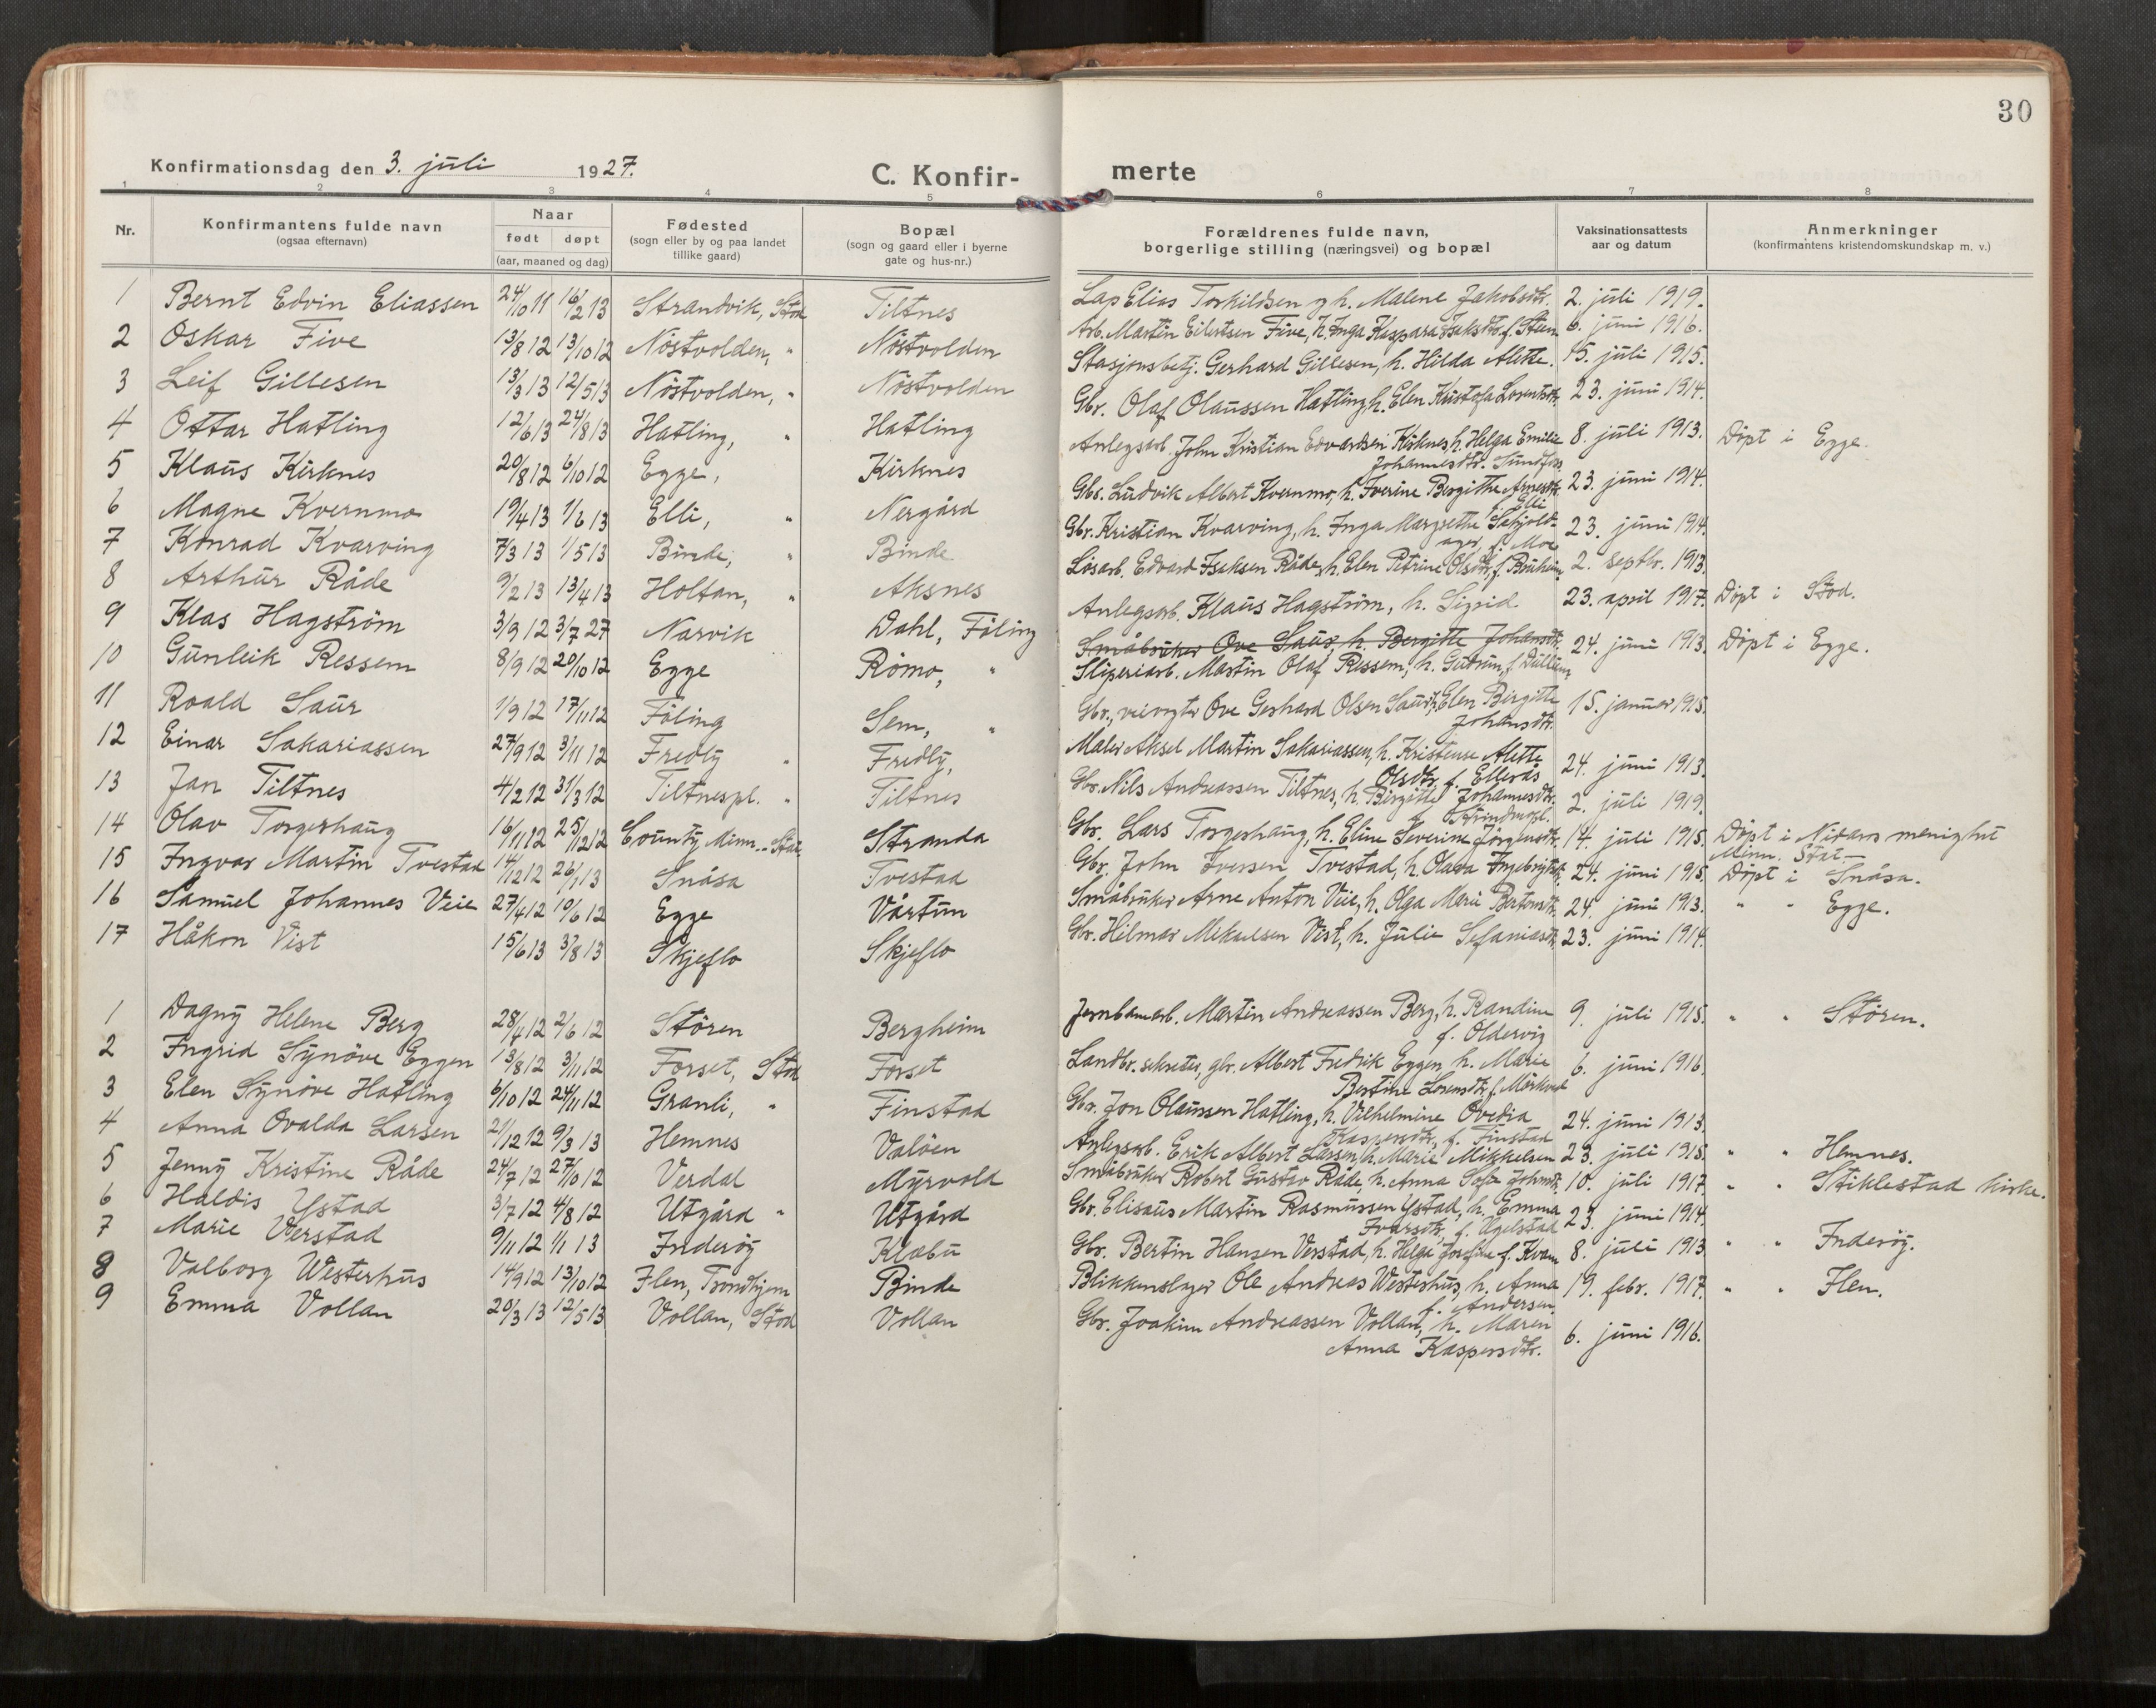 30
Konfirmationsdag den 3. juli 1927.
C. Konfir-
merte
1 2 3 4 5 6 7 8
Nr.
Konfirmantens fulde navn
(ogsaa efternavn)
Naar
født døpt
(aar, maaned og dag)
Fødested
(sogn eller by og paa landet
tillike gaard)
Bopæl
(sogn og gaard eller i byerne
gate og hus-nr.)
Forældrenes fulde navn,
borgerlige stilling (næringsvei) og bopæl
Vaksinationsattests
aar og datum
Anmerkninger
(konfirmantens kristendomskundskap m. v.)
1 Bernt Edvin Eliassen 24/10 11 16/2 13 Strandvik, Stod Tiltnes Lap Elias Torkildsen og h. Malene Jakobsdtr. 2. juli 1919.
2 Oskar Five 13/8 12 13/10 12 Nöstvolden, " Nöstvolden Arb. Martin Eilertsen Five, h. Inga Kaspara Isaksdtr. f. Steen 6. juni 1916.
3 Leif Gillesen 13/3 13 12/5 13 Nöstvolden, " Nöstvolden Stasjonsbetj. Gerhard Gillesen, h. Hilda Alette. 15. juli 1915.
4 Ottar Hatling 12/6 13 24/8 13 Hatling, " Hatling Gbr. Olaf Olaussen Hatling, h. Elen Kristofa Lorentsdtr. 23. juni 1914.
5 Klaus Kirknes 20/8 12 6/10 12 Egge, Kirknes Anlegsarb. John Kristian Edvardsen Kirknes, h. Helga Emilie 8. juli 1913. Döpt i Egge.
Johannesdtr. Sundfær
6 Magne Kvernmo 19/4 13 1/6 13 Elli, " Nergård Gbr. Ludvik Albert Kvernmo, h. Iverine Bergithe Arnesdtr. 23. juni 1914.
f. Elli
7 Konrad Kvarving 7/3 13 1/5 13 Binde, " Binde Gbr. Kristian Kvarving, h. Inga Margrethe Sehjold- 23. juni 1914.
ager, f. Moe
8 Arthur Råde 9/2 13 13/4 13 Holtan, " Aksnes Lösarb. Edvard Isaksen Råde, h. Elen Petrine Olsdtr. f. Bruheim 2. septbr. 1913.
9 Klas Hagström 3/9 12 3/7 27 Narvik Dahl, Föling Anlegsarb. Klaus Hagström, h. Sigrid 23. april 1917. Döpt i Stod.
Småbruker Ove Saur, h. Bergitte Johansdtr.
10 Gunleik Ressem 8/9 12 20/10 12 Egge Römo, " Sliperiarb. Martin Olaf Ressem, h. Gudrun, f. Dullum 24. juni 1913. Döpt i Egge.
11 Roald Saur 1/9 12 17/11 12 Föling Sem, " Gbr., veivogter Ove Gerhard Olsen Saur, h. Elen Birgitte 15. januar 1915.
Johansdtr.
12 Einar Sakariassen 27/9 12 3/11 12 Fredly " Fredly, Maler Aksel Martin Sakariassen, h. Kristense Alette 24. juni 1913.
Olsdtr. f. Ellerås
13 Jan Tiltnes 4/2 12 31/3 12 Tiltnespl. " Tiltnes Gbr. Nils Andreassen Tiltnes, h. Birgitte Johannesdtr. 2. juli 1919.
f. Strindmopl.
14 Olav Torgershaug 16/11 12 25/12 12 County, Minn. Stat. Stranda Gbr. Lars Torgershaug, h. Eline Severine Jörgensdtr. 14. juli 1915. Döpt i Nidaros menighet
Minn. Stat.
15 Ingvar Martin Tvestad 14/12 12 26/1 13 Snåsa Tvestad Gbr. John Iversen Tvestad, h. Olava Ingebrigtsdtr. 24. juni 1915. Döpt i Snåsa.
16 Samuel Johannes Veie 27/4 12 10/6 12 Egge Vårtun Småbruker Arne Anton Veie, h. Olga Marie Bertonsdtr. 24. juni 1913. " " Egge.
17 Håkon Vist 15/6 13 3/8 13 Skjeflo Skjeflo Gbr. Hilmar Mikaelsen Vist, h. Julie Sefaniasdtr. 23. juni 1914.
1 Dagny Helene Berg 28/4 12 2/6 12 Stören Bergheim Jernbanearb. Martin Andreassen Berg, h. Randine 9. juli 1915. " " Stören.
f. Oldervig
2 Ingrid Synöve Eggen 13/8 12 3/11 12 Forset, Stod Forset Landbr. sekretær, gbr. Albert Fredrik Eggen, h. Marie 6. juni 1916.
Bertine Lorensdtr. f. Mörkved
3 Elen Synöve Hatling 6/10 12 24/11 12 Granli, " Finstad Gbr. Jon Olaussen Hatling, h. Vilhelmine Ovedia 24. juni 1913.
Kaspersdtr., f. Finstad
4 Anna Ovalda Larsen 21/12 12 9/3 13 Hemnes Valöen Anlegsarb. Erik Albert Larsen, h. Marie Mikkelsen 23. juli 1915. " " Hemnes.
5 Jenny Kristine Råde 24/7 12 27/10 12 Verdal Myrvold Småbruker Robert Gustav Råde, h. Anna Sofie Johnsdtr. 10. juli 1917. " " Stiklestad kirke.
6 Haldis Ystad 3/7 12 4/8 12 Utgård " Utgård Gbr. Elisaus Martin Rasmussen Ystad, h. Emma 23. juni 1914.
Ivarsdtr., f. Ögelstad
7 Marie Verstad 9/11 12 1/1 13 Inderöy Klabu Gbr. Bertin Hansen Verstad, h. Helga Josefine f. Kvam 8. juli 1913 " " Inderöy.
8 Valborg Westerhus 14/9 12 13/10 12 Ilen, Trondhjem Binde Blikkenslager Ole Andreas Westerhus, h. Anna 19. febr. 1917. " " Ilen.
f. Andersen.
9 Emma Vollan 20/3 13 12/5 13 Vollan, Stod Vollan Gbr. Joakim Andreassen Vollan, h. Maren 6. juni 1916.
Anna Kaspersdtr.